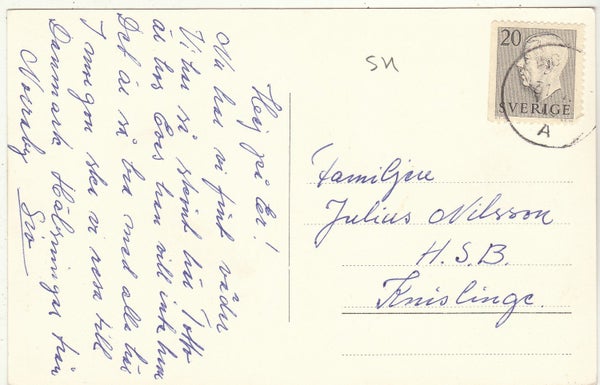 Hej på Er!
Nu har vi fint väder
Vi har så skönt här Totto
är hos Evis han vill inte hem
Det är så bra med alla här
I morgon ska vi resa till
Danmark Hälsningar från
Norraby
SN
20
SVERIGE
A
Familjen
Julius Nilsson
H.S.B.
Knislinge.